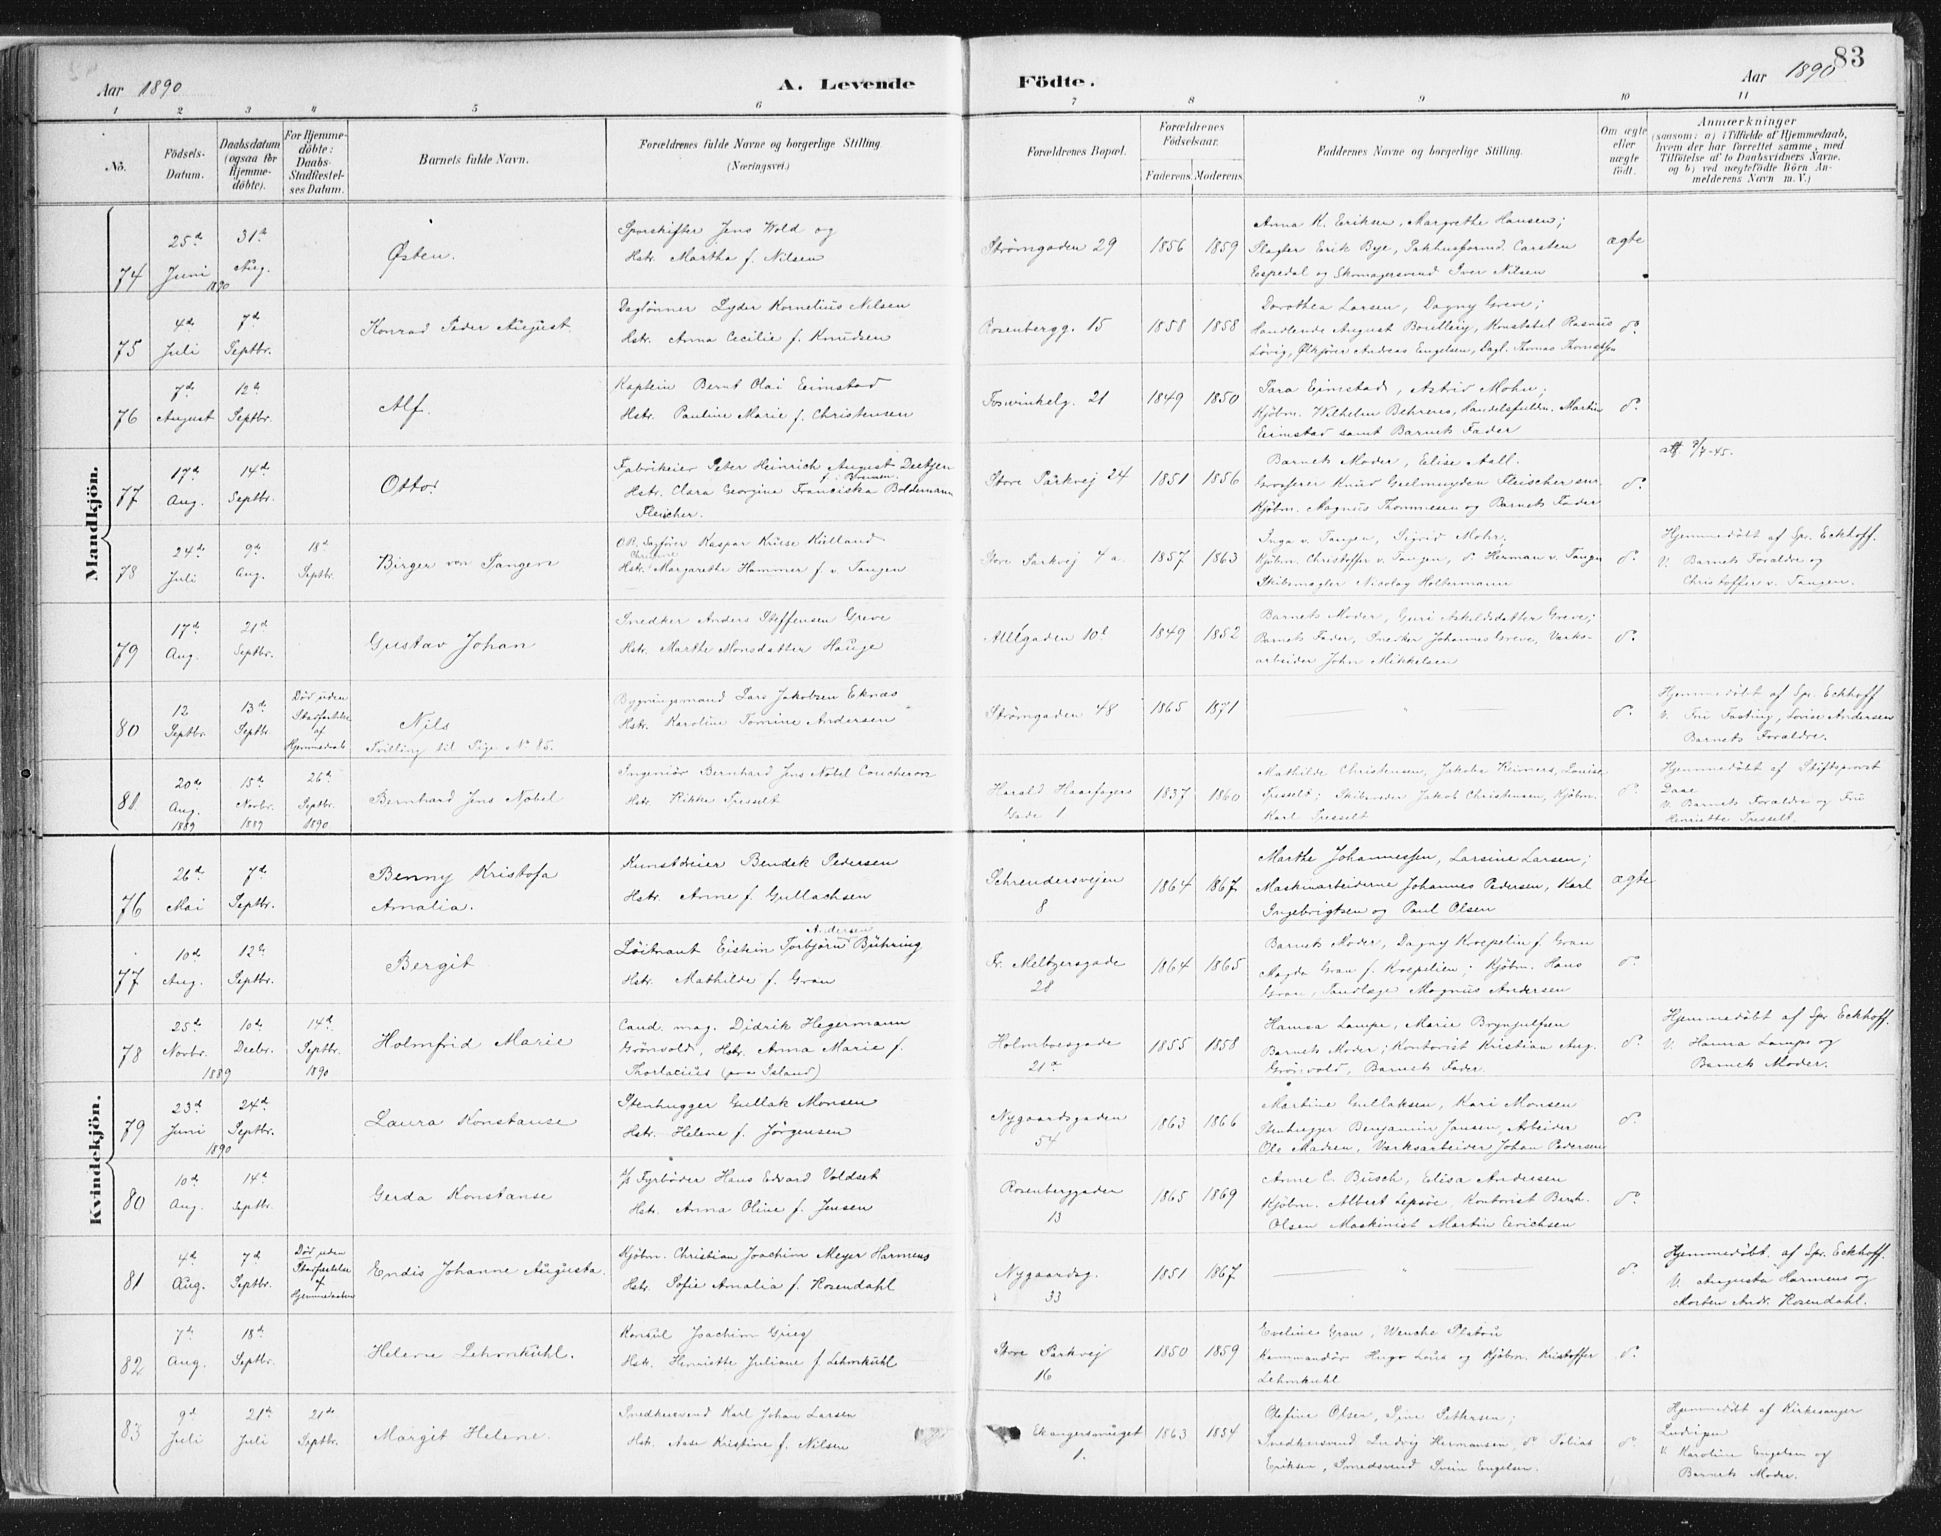 83
Aar 1890
A. Levende
Födte.
Aar 1890
1 2 3 4 5 6 7 8 9 10 11
No.
Födsels-Datum.
Daabsdatum (ogsaa for Hjemme-döbte).
For Hjemme-döbte: Daabs-Stadfæstel-ses Datum.
Barnets fulde Navn.
Forældrenes fulde Navne og borgerlige Stilling.
(Næringsvei.)
Forældrenes Bopæl.
Forældrenes Födselsaar.
Faderens. Moderens.
Faddernes Navne og borgerlige Stilling.
Om ægte eller uægte födt.
Anmærkninger
(saasom: a) i Tilfælde af Hjemmedaab,
hvem der har forrettet samme, med
Tilföielse af to Daabsvidners Navne,
og b) ved uægtefödte Börn An-
melderens Navn m. V.)
Mandkjön.
74 25de Juni 1890 31te Aug. Østen.
Sporskifter Jens Wold og
Hstr. Martha f. Nilsen
Strömgaden 29 1856 1859
Anna K. Eriksen, Margrethe Hansen;
Slagter Erik Bye, Pakhusformd. Carsten
Espedal og Skomagersvend Iver Nilsen
ægte
75 4de Juli 7de Septbr. Konrad Peder August.
Daglönner Lyder Kornelius Nilsen
Hstr. Anna Cecilie f. Knudsen
Rosenbergg. 15 1858 1858
Dorothea Larsen, Dagny Greve;
Handlende August Konstabel Rasmus
Lövig, Ølkjører Andreas Engelsen, Dagl. Thomas Thomassen
do
76 7de August 12te Septbr. Alf.
Kaptein Bernt Olai Eimstad
Hstr. Pauline Marie f. Christensen
Fosvinkelg. 21 1849 1850
Sara Eimstad, Astrid Mohn;
Kjøbm. Wilhelm Behrens, Handelsfuldm. Martin
Eimstad samt Barnets Fader
do
77 17de Aug. 14de Septbr. Otto.
Fabrikeier Peter Heinrich August Deetjen
f. i Bremen.
Hstr. Clara Georgine Franciska Boldemann
Fleischer.
Store Parkvej 24 1851 1856
Barnets Moder, Elise Aall.
Grosserer Knud Geelmuyden Fleischer
Kjøbm. Magnus Thommesen og Barnets Fader
do
78 24de Juli 9de Aug. 18de Septbr. Birger von Tangen
O.R. Sagfører Kaspar Kruse Kielland
Hstr. Margarethe Hammer f. v. Tangen
Store Parkvej 4 a. 1857 1863
Inga v. Tangen, Sigrid Mohr,
Kjøbm. Christoffer v. Tangen, do Herman v. Tangen
Skibsmægler Nicolay Holtermann
do
Hjemmedøbt af Spr. Eckhoff.
V. Barnets Forældre og
Christoffer v. Tangen.
79 17de Aug. 21de Septbr. Gustav Johan
Snedker Anders Steffensen Greve
Hstr. Marthe Monsdatter Hauge
Allégaden 10 1849 1852
Barnets Moder, Guri Askeldsdatter Greve;
Barnets Fader, Snedker Johannes Greve, Værks-
arbeider John Mikkelsen
do
80 12 Septbr. 13de Septbr Død uden Stadfæstelse af Hjemmedaab
Nils
Tvilling til Pige No 85.
Bygningsmand Lars Jakobsen Eknæs
Hstr. Karoline Tomine Andersen
Strömgaden 48 1865 1871
do
Hjemmedøbt af Spr. Eckhoff
V. Fru Fasting, Lovise Andersen
Barnets Forældre.
81 20de Aug. 1889 15de Novbr. 1889 26de Septbr. 1890 Bernhard Jens Nobel
Ingeniör Bernhard Jens Nobel Coucheron
Hstr. Rikke Tresselt
Harald Haarfagers Gade 1 1837 1860
Mathilde Christensen, Jakoba Reimers, Louise
Tresselt; Skibsreder Jakob Christensen, Kjøbm.
Karl Tresselt
do
Hjemmedøbt af Stiftsprovst
Daae
V. Barnets Forældre og Fru
Henriette Tresselt.
Kvindekjön.
76 26de Mai 7de Septbr. Benny Kristofa
Amalia.
Kunstdreier Bendik Pedersen
Hstr. Anne f. Gullachsen
Schrendersvejen 8 1864 1867
Marthe Johannessen, Larsine Larsen;
Maskinarbeiderne Johannes Pedersen, Karl
Ingebrigtsen og Paul Olsen
ægte
77 10de Aug. 12te Septbr. Bergit
Andersen
Löitnant Eistein Torbjørn Bühring
Hstr. Mathilde f. Gran
Fr. Meltzersgade 28 1864 1865
Barnets Moder, Dagny Kroepelin f. Gran
Magda Gran f. Kroepelien; Kjøbm. Hans
Gran, Tandlæge Magnus Andersen
do
78 25de Novbr. 1889 10de Decbr. 14de Septbr. 1890 Holmfrid Marie
Cand. mag. Didrik Hegermann
Grönvold, Hstr. Anna Marie f.
Thorlacius (paa Island)
Holmboesgade 21a 1855 1858
Hanna Lampe, Marie Brynjulfsen
Barnets Moder; Kontorist Kristian Aug.
Grönvold, Barnets Fader.
do
Hjemmedøbt af Spr Eckhoff.
V. Hanna Lampe og
Barnets Moder.
79 23de Juni 1890 24de Septbr. Laura Konstanse
Stenhugger Gullak Monsen
Hstr. Helene f. Jörgensen
Nygaardsgaden 54 1863 1866
Martine Gullaksen, Kari Monsen
Stenhugger Benjamin Jansen, Arbeider
Ole Madsen, Værksarbeider Johan Pedersen
do
80 10de Aug. 14de Septbr. Gerda Konstanse
Fyrbøder Hans Edvard Voldset
Hstr. Anna Oline f. Jensen
Rosenberggaden 13 1865 1869
Anne C. Busch, Elisa Andersen
Kjøbm. Albert Lepsöe, Kontorist Bernh.
Olsen Maskinist Martin Eerichsen
do
81 4de Aug. 7de Septbr Død uden Stadfæstelse af Hjemmedaaben Endis Johanne Augusta.
Kjøbm. Christian Joachim Meyer Harmens
Hstr. Sofie Amalia f. Rosendahl
Nygaardsg. 33 1851 1867
do
Hjemmedøbt af Spr. Eckhoff.
V. Augusta Harmens og
Morten Andr. Rosendahl.
82 7de Aug. 18de Septbr. Helene Lehmkuhl.
Konsul Joachim Grieg
Hstr. Henriette Juliane f. Lehmkuhl
Store Parkvej 16 1850 1859
Eveline Gran, Wenche Platou
Kommandör Hugo Lous og Kjøbm. Kristoffer
Lehmkuhl
do
83 9de Juli 21de Juli 21de Septbr. Margit Helene.
Snedkersvend Karl Johan Larsen
Hstr. Aase Kristine f. Nilsen
Ekangersmuget 1. 1863 1854
Olefine Olsen, Sine Pettersen;
Snedkersvend Ludvig Hermansen, do Tobias
Eriksen, Smedsvend Svein Engelsen.
do
Hjemmedøbt af Kirkesanger
V. Karoline Engelsen og
Barnets Moder.